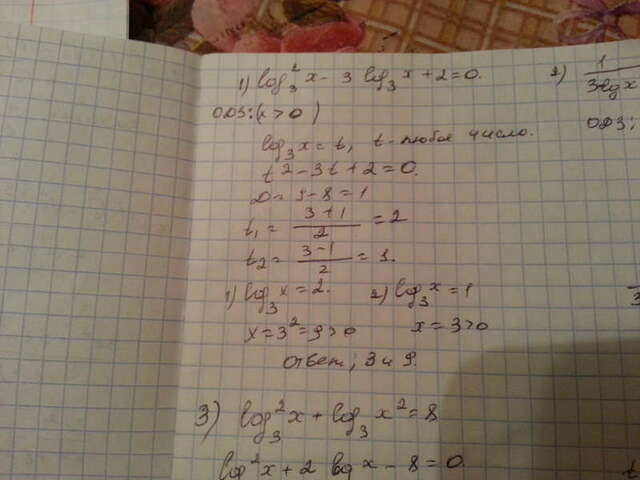 1) log₃² x - 3 log₃ x + 2 = 0.
ОДЗ: (x > 0)
log₃ x = t, t - любое число.
t² - 3t + 2 = 0.
D = 9 - 8 = 1
t₁ = (3+1)/2 = 2
t₂ = (3-1)/2 = 1.
1) log₃ x = 2. 2) log₃ x = 1
x = 3² = 9 > 0 x = 3 > 0
Ответ; 3 и 9.
3) log₃² x + log₃ x² = 8
log² x + 2 log x - 8 = 0.
2) 1/3 lg x
ОДЗ;